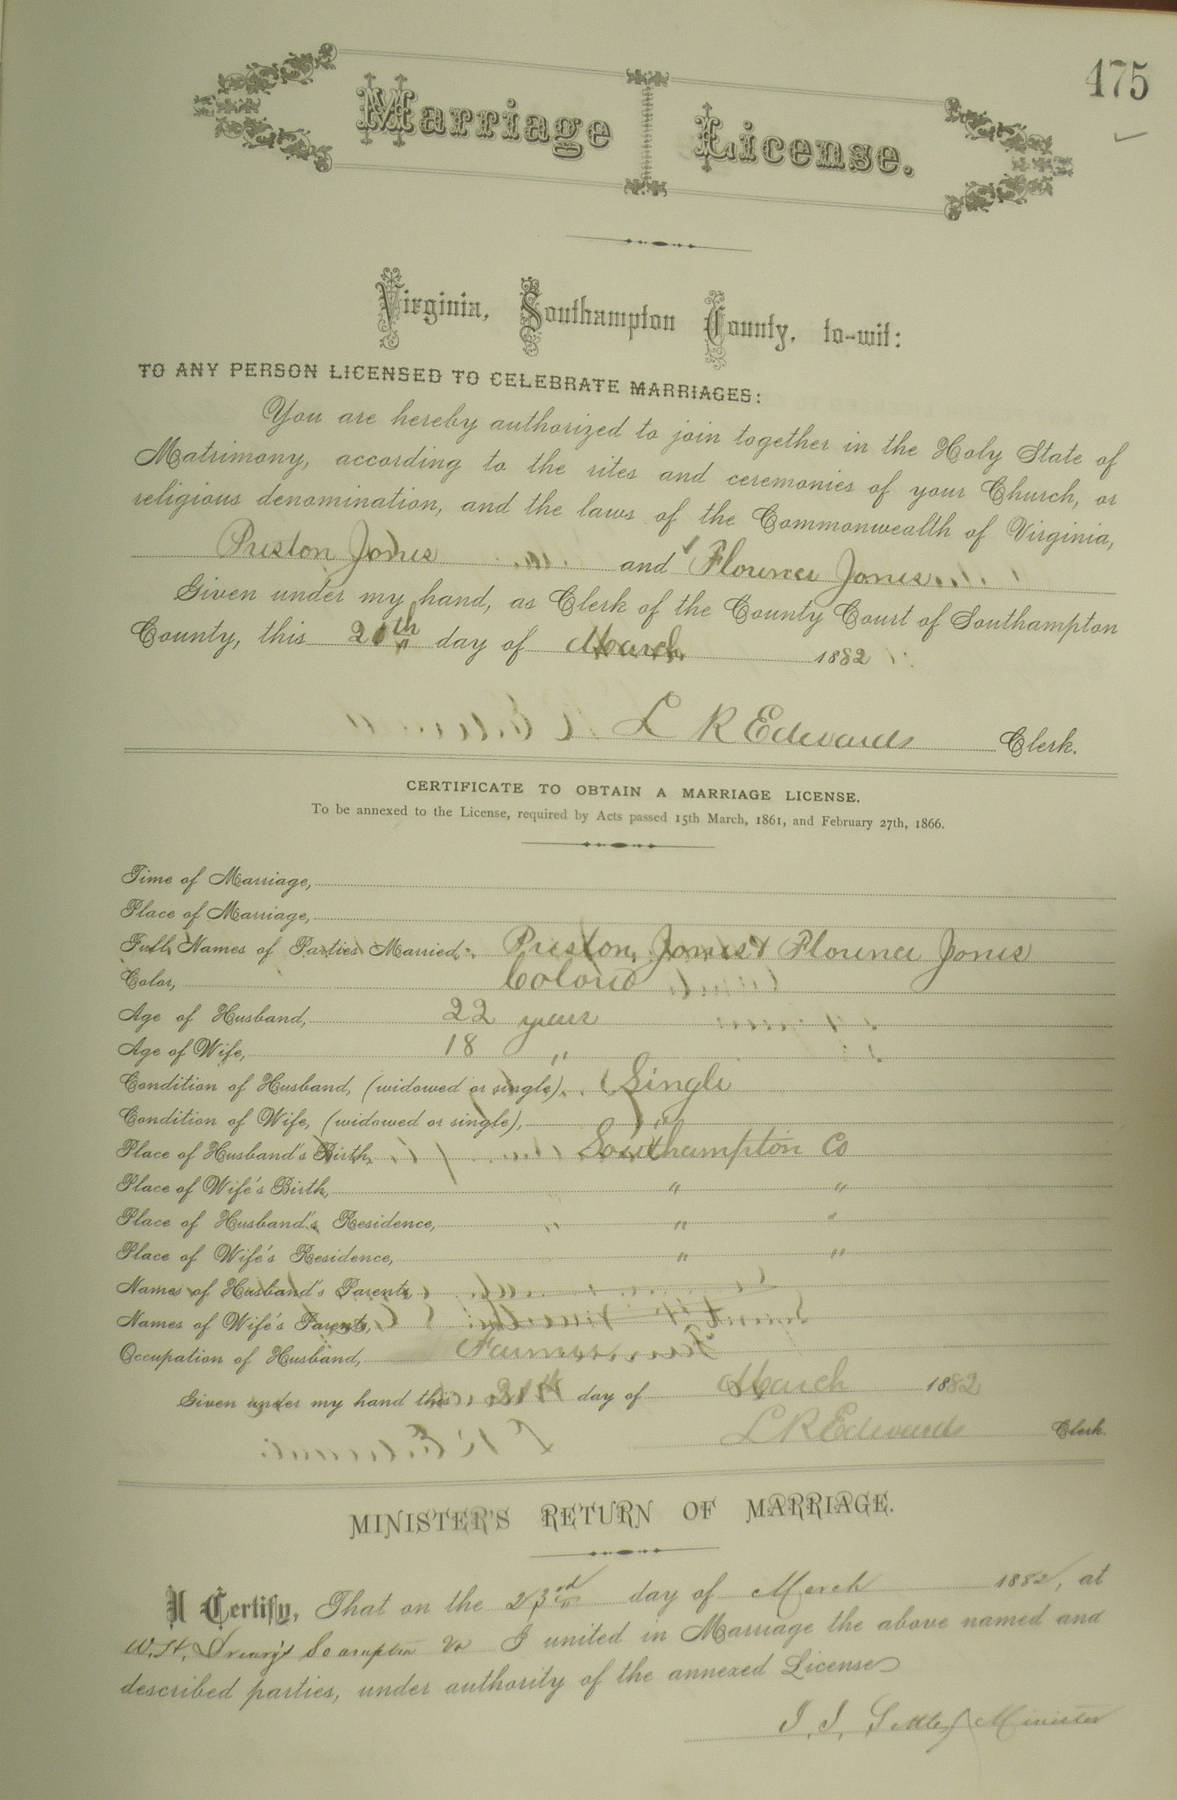 475
Marriage License.
Virginia, Southampton County, to-wit:
TO ANY PERSON LICENSED TO CELEBRATE MARRIAGES:
You are hereby authorized to join together in the Holy State of
Matrimony, according to the rites and ceremonies of your Church, or
religious denomination, and the laws of the Commonwealth of Virginia,
Preston Jones and Florence Jones
Given under my hand, as Clerk of the County Court of Southampton
County, this day of March 1882
L R Edwards Clerk.
CERTIFICATE TO OBTAIN A MARRIAGE LICENSE.
To be annexed to the License, required by Acts passed 15th March, 1861, and February 27th, 1866.
Time of Marriage,
Place of Marriage,
Full Names of Parties Married, Preston Jones & Florence Jones
Color, Colored
Age of Husband, 22 years
Age of Wife, 18 "
Condition of Husband, (widowed or single), Single
Condition of Wife, (widowed or single), "
Place of Husband's Birth, Southampton Co
Place of Wife's Birth, " "
Place of Husband's Residence, " "
Place of Wife's Residence, " "
Names of Husband's Parents,
Names of Wife's Parents,
Occupation of Husband, Farmer
Given under my hand this day of March 1882
L R Edwards Clerk.
MINISTER'S RETURN OF MARRIAGE.
I Certify, That on the 23rd day of March 1882, at
W. H. Va I united in Marriage the above named and
described parties, under authority of the annexed License
Minister